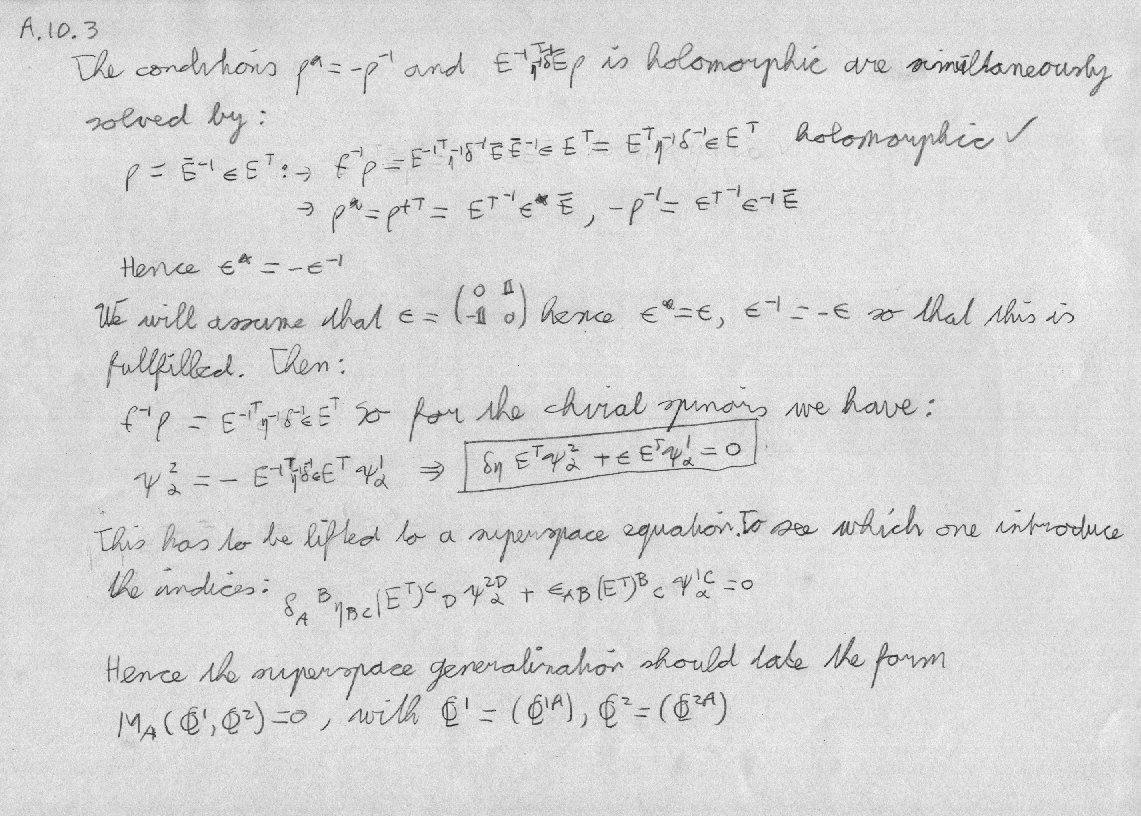 A.10.3
The conditions ρ* = -ρ⁻¹ and E⁻¹ᵀη⁻¹δ⁻¹Ēρ is holomorphic are simultaneously
solved by:
ρ = Ē⁻¹ ϵ Eᵀ : → f⁻¹ρ = E⁻¹ᵀη⁻¹δ⁻¹Ē Ē⁻¹ϵ Eᵀ = Eᵀη⁻¹δ⁻¹ϵ Eᵀ holomorphic ✓
→ ρ* = ρ⁺ᵀ = Eᵀ⁻¹ϵ* Ē , -ρ⁻¹ = ϵᵀ⁻¹ϵ⁻¹Ē
Hence ϵ* = -ϵ⁻¹
We will assume that ϵ = (0 𝟙 / -𝟙 0) hence ϵ* = ϵ, ϵ⁻¹ = -ϵ so that this is
fullfilled. Then:
f⁻¹ρ = E⁻¹ᵀη⁻¹δ⁻¹ϵEᵀ so for the chiral spinors we have:
ψ²_α = - E⁻¹ᵀη⁻¹δ⁻¹ϵEᵀ ψ¹_α ⇒ δη Eᵀψ²_α + ϵ Eᵀψ¹_α = 0
This has to be lifted to a superspace equation. To see which one introduce
the indices: δ_A^B η_BC (Eᵀ)^C_D ψ_α^2D + ϵ_AB (Eᵀ)^B_C ψ_α^1C = 0
Hence the superspace generalization should take the form
M_A(Φ¹, Φ²) = 0 , with Φ¹ = (Φ¹ᴬ), Φ² = (Φ²ᴬ)